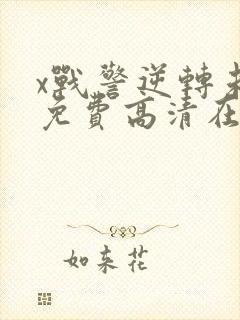 x戰警逆轉未
免費高清在
如来花